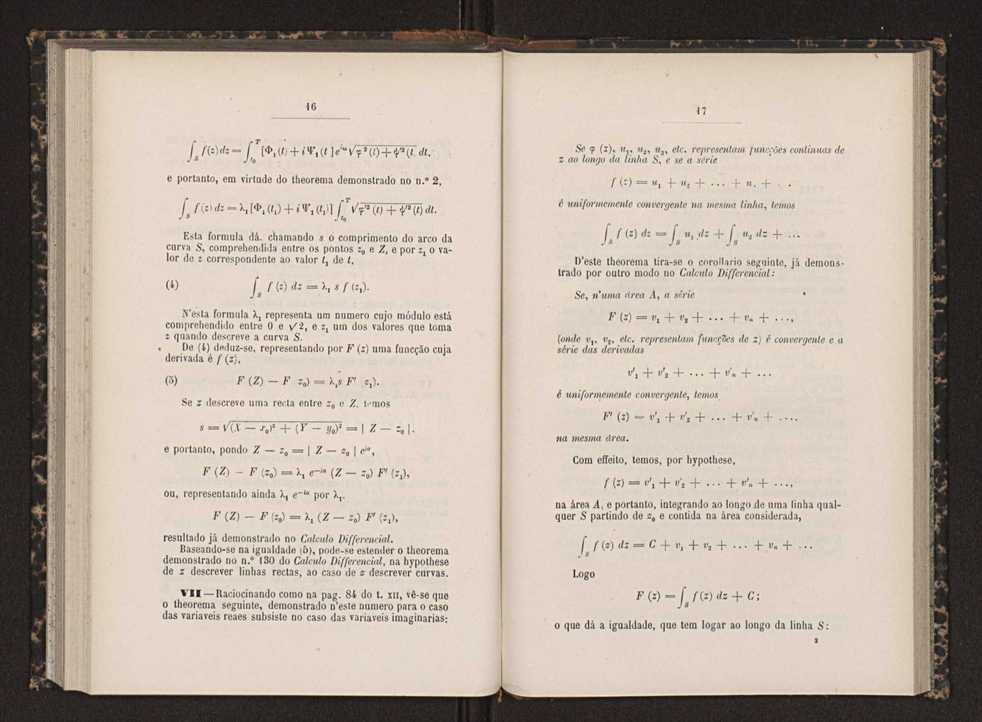 16
∫_S f(z) dz = ∫_{t₀}^{T} [Φ₁(t) + i Ψ₁(t)] e^{iω} √φ'²(t) + ψ'²(t) dt,
e portanto, em virtude do theorema demonstrado no n.º 2,
∫_S f(z) dz = λ₁ [Φ₁(t₁) + i Ψ₁(t₁)] ∫_{t₀}^{T} √φ'²(t) + ψ'²(t) dt.
Esta formula dá, chamando s o comprimento do arco da
curva S, comprehendida entre os pontos z₀ e Z, e por z₁ o va-
lor de z correspondente ao valor t₁ de t,
(4) ∫_S f (z) dz = λ₁ s f (z₁).
N'esta formula λ₁ representa um numero cujo módulo está
comprehendido entre 0 e √2, e z₁ um dos valores que toma
z quando descreve a curva S.
De (4) deduz-se, representando por F (z) uma funcção cuja
derivada é f (z),
(5) F (Z) — F (z₀) = λ₁s F' (z₁).
Se z descreve uma recta entre z₀ e Z, temos
s = √(X — x₀)² + (Y — y₀)² = | Z — z₀ |,
e portanto, pondo Z — z₀ = | Z — z₀ | e^{iα},
F (Z) — F (z₀) = λ₁ e^{—iα} (Z — z₀) F' (z₁),
ou, representando ainda λ₁ e^{—iα} por λ₁,
F (Z) — F (z₀) = λ₁ (Z — z₀) F' (z₁),
resultado já demonstrado no Calculo Differencial.
Baseando-se na igualdade (5), pode-se estender o theorema
demonstrado no n.º 130 do Calculo Differencial, na hypothese
de z descrever linhas rectas, ao caso de z descrever curvas.
VII — Raciocinando como na pag. 84 do t. XII, vê-se que
o theorema seguinte, demonstrado n'este numero para o caso
das variaveis reaes subsiste no caso das variaveis imaginarias:
17
Se φ (z), u₁, u₂, u₃, etc. representam funcções continuas de
z ao longo da linha S, e se a série
f (z) = u₁ + u₂ + ... + uₙ + ...
é uniformemente convergente na mesma linha, temos
∫_S f (z) dz = ∫_S u₁ dz + ∫_S u₂ dz + ...
D'este theorema tira-se o corollario seguinte, já demons-
trado por outro modo no Calculo Differencial:
Se, n'uma área A, a série
F (z) = v₁ + v₂ + ... + vₙ + ...,
(onde v₁, v₂, etc. representam funcções de z) é convergente e a
série das derivadas
v'₁ + v'₂ + ... + v'ₙ + ...
é uniformemente convergente, temos
F' (z) = v'₁ + v'₂ + ... + v'ₙ + ...,
na mesma área.
Com effeito, temos, por hypothese,
f (z) = v'₁ + v'₂ + ... + v'ₙ + ...,
na área A, e portanto, integrando ao longo de uma linha qual-
quer S partindo de z₀ e contida na área considerada,
∫_S f (z) dz = C + v₁ + v₂ + ... + vₙ + ...
Logo
F (z) = ∫_S f (z) dz + C;
o que dá a igualdade, que tem logar ao longo da linha S:
2